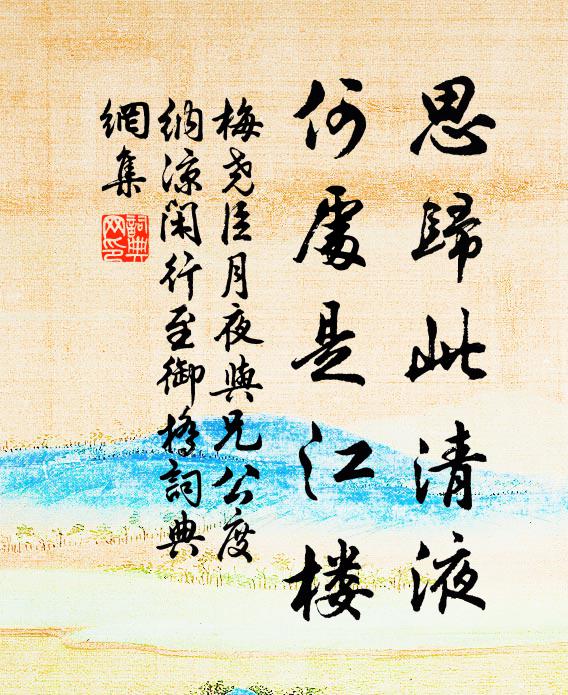 思歸此清液
何處是江樓
梅堯臣月夜與兄公度
納涼閑行至御橋詞典
網集
詞典
网印